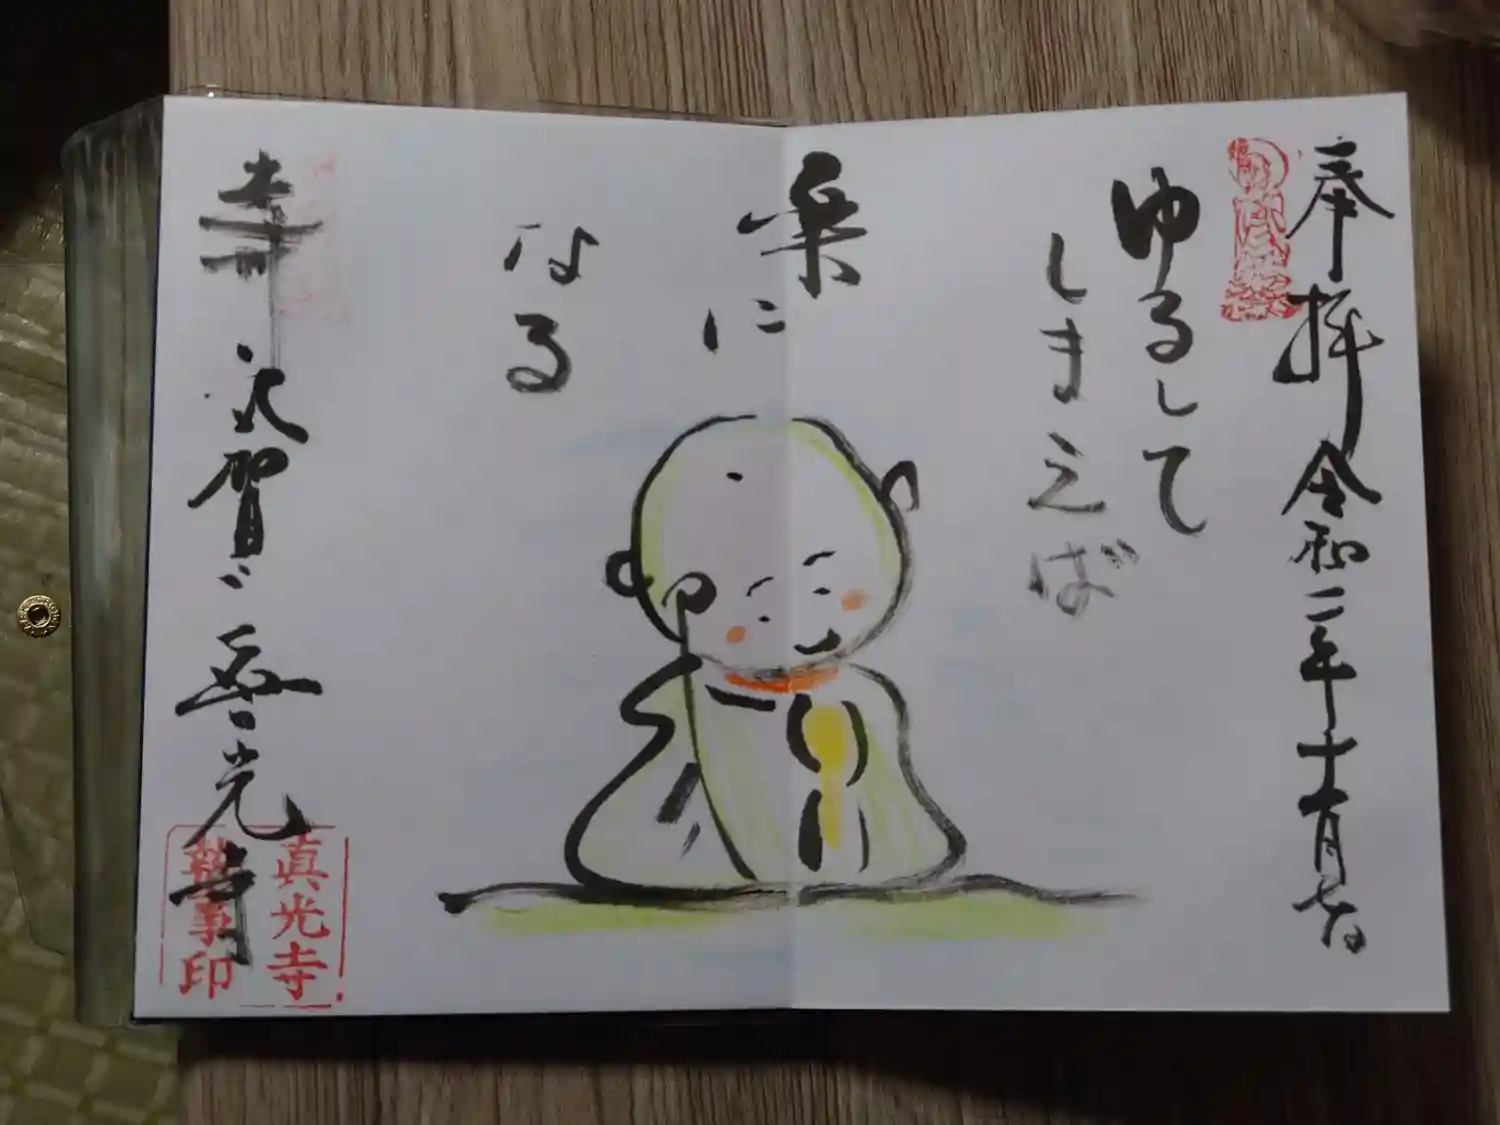 奉拝 令和二年十一月七日
ゆるして
しまえば
楽に
なる
真光寺
執事印